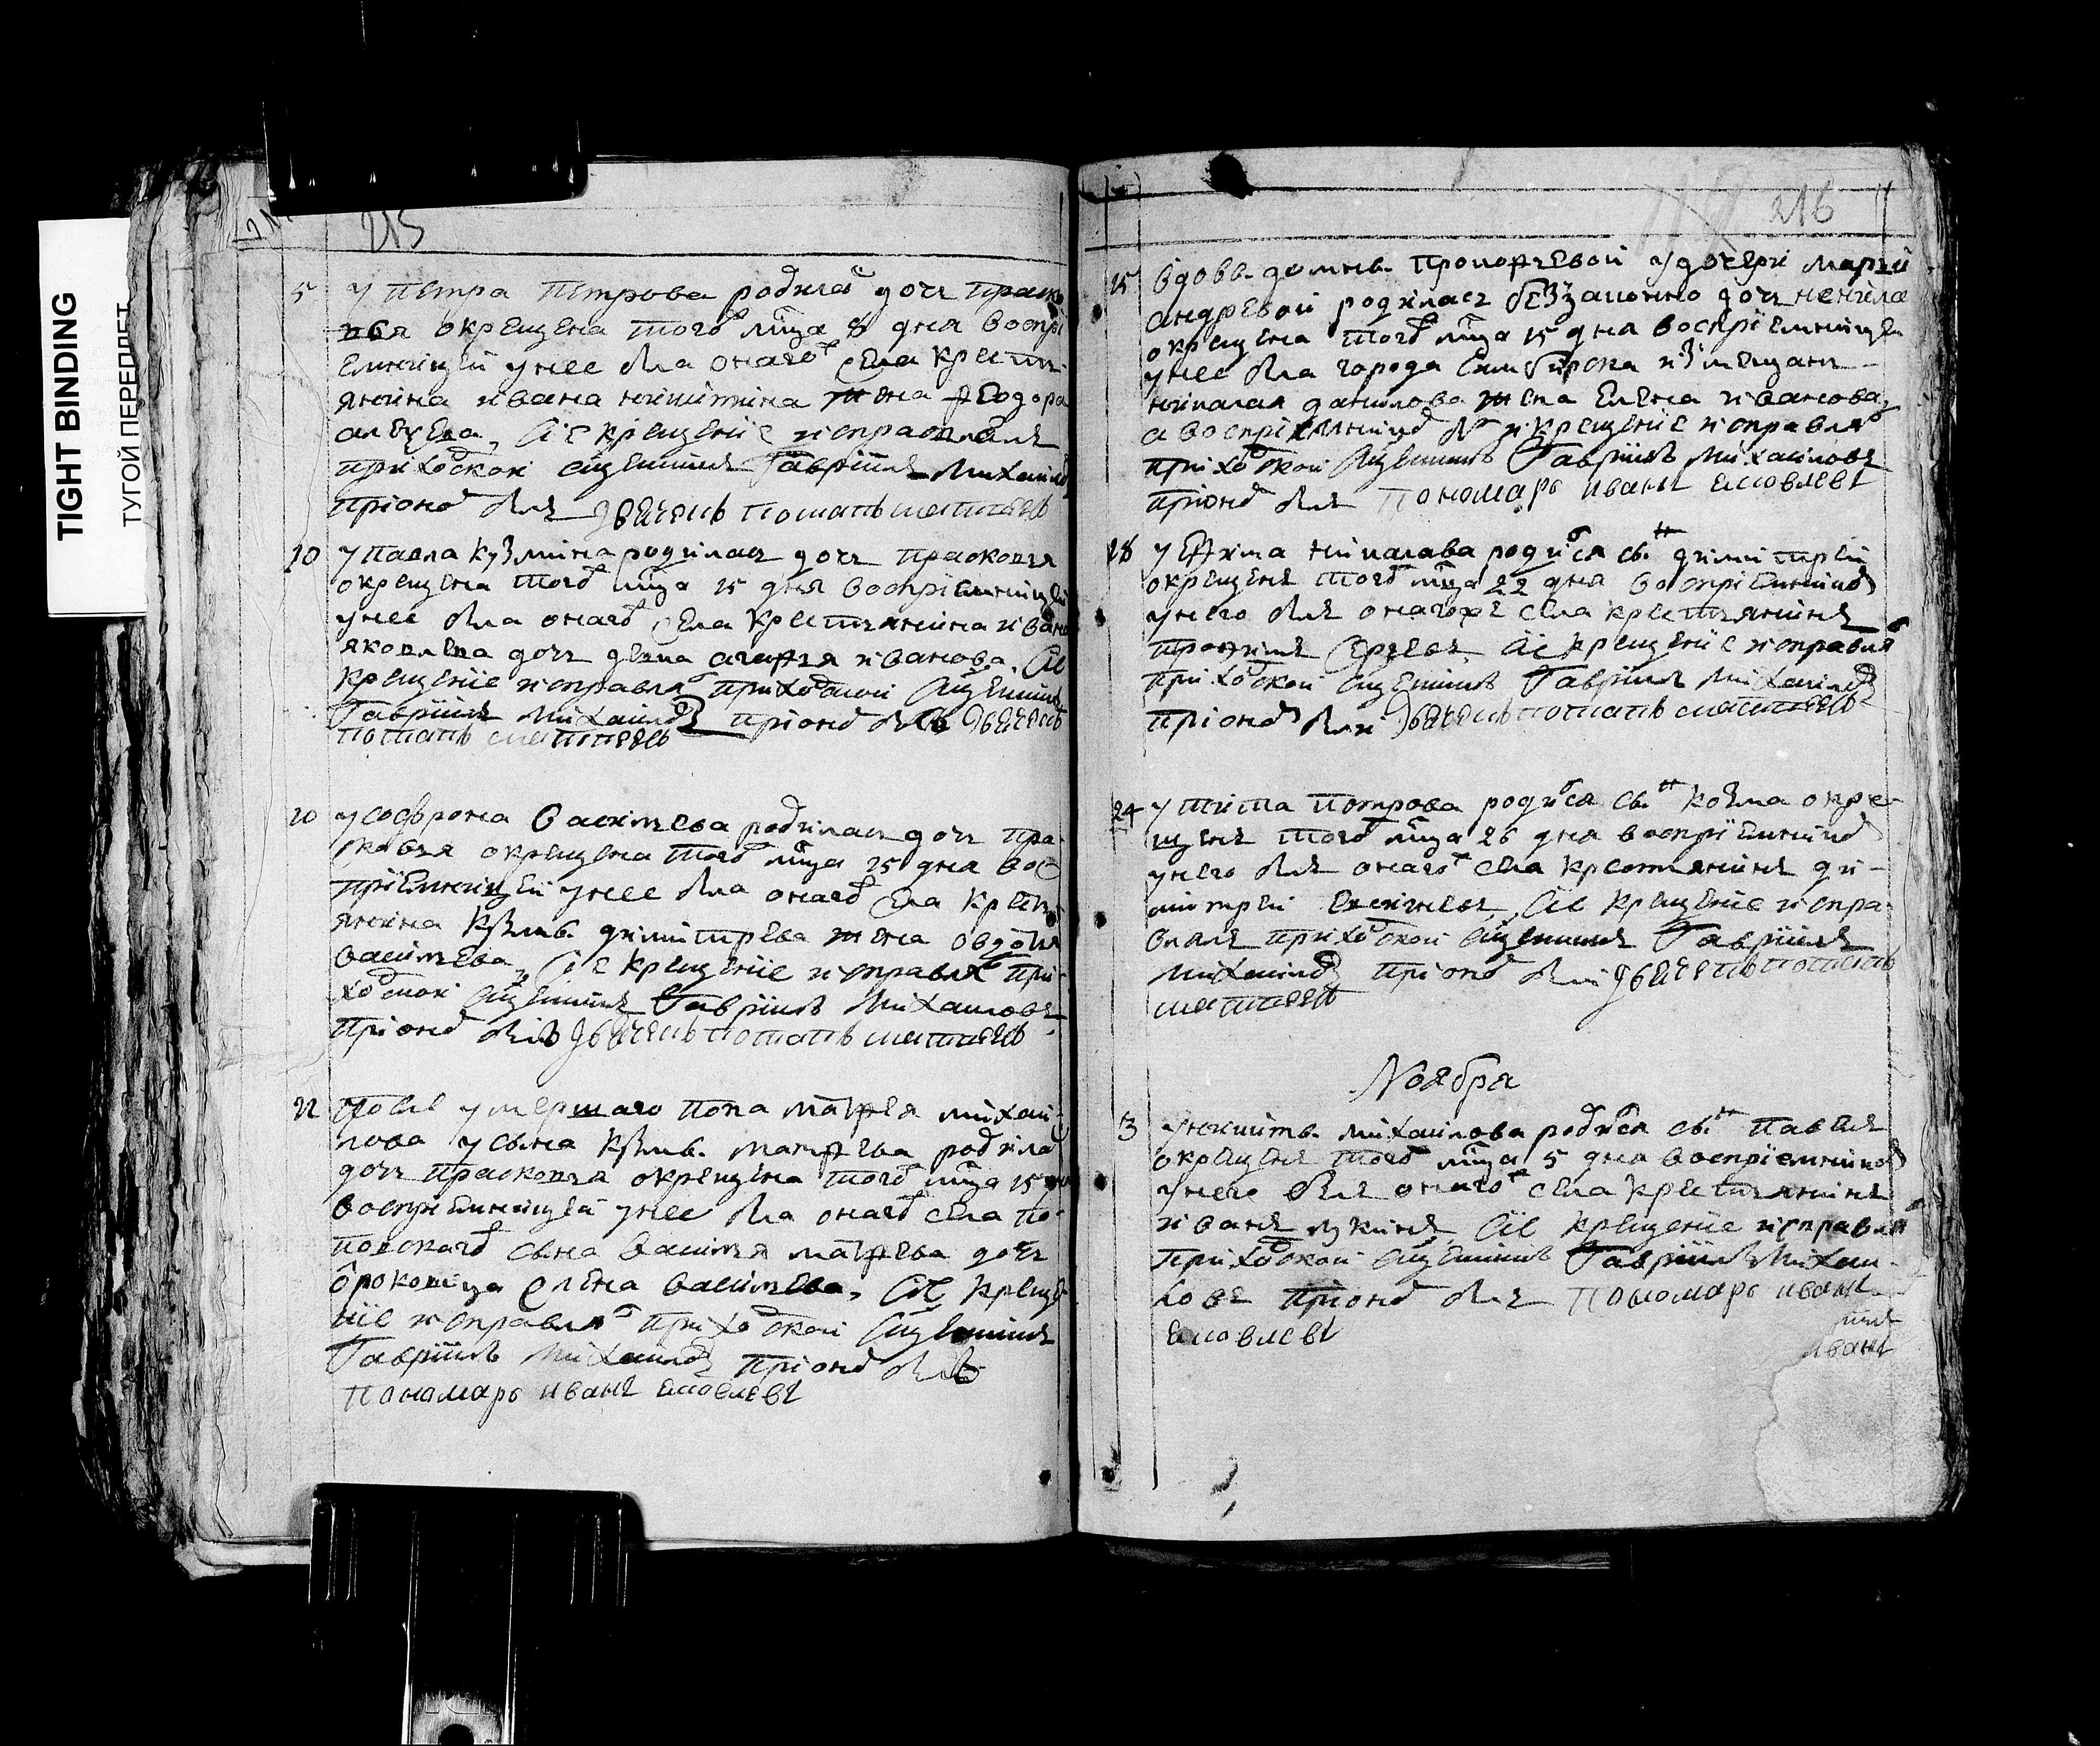 TIGHT BINDING
ТУГОЙ ПЕРЕПЛЕТ
215
5 у Петра Петрова родилас дочь Праско
вья окрещена того мца 8 дня воспрі
емницей у нее была онаго села крестъ
янина Ивана Никитина жена Феодора
сіе крещеніе исправлялъ
приходской сщенникъ Гавріилъ Михаиловъ
при оном былъ дьячокъ Потапъ Матвеевъ
10 у Павла Кузмина родилась дочь Прасковья
окрещена того мца 15 дня воспріемницей
у нее была онаго села крестьянина Ивана
Яковлева дочь девка Агафья Иванова. Сіе
крещеніе исправлялъ приходской сщенникъ
Гавріилъ Михаиловъ при оном былъ дьячокъ
Потапъ Матвеевъ
20 у Софрона Васильева родилась дочь Пра
сковья окрещена того мца 25 дня вос
пріемницей у нее была онаго села кресть
янина Кузмы Димитріева жена Овдотья
Васильева, Сіе крещеніе исправлялъ при
ходской сщенникъ Гавріилъ Михаиловъ
при оном былъ дьячокъ Потапъ Матвеевъ
22 После умершаго попа Матфея Михаи
лова у сына Кузмы Матфеева родилас
дочь Прасковья окрещена того мца 25 дня
воспріемницей у нее была онаго села по
повскаго сына Василья Матфеева дочь
отроковица Елена Васильева, Сіе креще
ніе исправлялъ приходской сщенникъ
Гавріилъ Михаиловъ при оном былъ
Пономарь Иванъ Яковлевъ
216
15 Вдовы Домны Прокофьевой у дочери Марьи
Андреевой родилась беззаконно дочь Ненила
окрещена того мца 15 дня воспріемницей
у нее была города Симбирска из мещанъ
Николая Данилова жена Елена Иванова,
а воспріемникъ и крещеніе исправлялъ
приходской сщенникъ Гавріилъ Михаиловъ
при оном былъ Пономарь Иванъ Яковлевъ
18 у Ефима Николаева родился сынъ Димитрей
окрещенъ того мца 22 дня воспріемникъ
у него былъ онаго же села крестьянинъ
Сіе крещеніе исправлялъ
приходской сщенникъ Гавріилъ Михаиловъ
при оном были дьячокъ Потапъ Матвеевъ
24 у Тита Петрова родился сынъ Козма окре
щенъ того мца 26 дня воспріемникъ
у него былъ онаго села крестьянинъ Ди
митрей Сіе крещеніе испра
влялъ приходской сщенникъ Гавріилъ
Михаиловъ при оном были дьячокъ Потапъ
Матвеевъ
Ноября
3 у Никиты Михаилова родился сынъ Павелъ
окрещенъ того мца 5 дня воспріемникъ
у него былъ онаго села крестьянинъ
Иванъ Лукинъ Сіе крещеніе исправлялъ
приходской сщенникъ Гавріилъ Михаи
ловъ при оном былъ Пономарь Иванъ
Яковлевъ
Иванъ